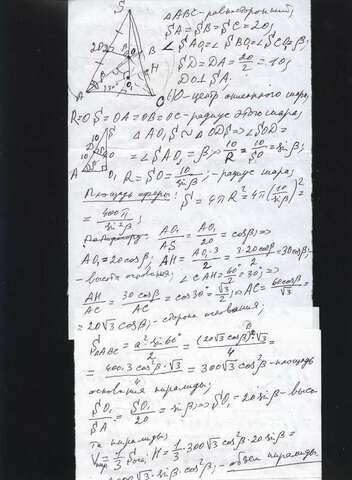 △ABC-равносторонний;
SA=SB=SC=20;
∠SAO₁=∠SBO₁=∠SCO₁=β;
SD=DA=20/2=10;
DO⊥SA.
O-центр описанного шара,
R=OS=OA=OB=OC-радиус этого шара;
△AO₁S∾△ODS⇒∠SOD=
=∠SAO₁=β;⇒10/R=10/SO=sinβ;
R=SO=10/sinβ;-радиус шара;
Площадь сферы: S=4πR²=4π(10/sinβ)²=
=400π/sin²β;
AO₁/AS=AO₁/20=cosβ;⇒
AO₁=20cosβ; AH=AO₁·3/2=3·20cosβ/2=30cosβ;-
-высота основания; ∠CAH=60°/2=30°;⇒
AH/AC=30cosβ/AC=cos30°=√3/2;⇒AC=60cosβ/√3=
=20√3cosβ;-сторона основания;
S△ABC=a²·sin60°/2=(20√3cosβ)²·√3/4=
=400·3cos²β·√3/4=300√3cos²β-площадь
основания пирамиды;
SO₁/SA=SO₁/20=sinβ;⇒SO₁=20sinβ-высо-
та пирамиды;
Vпир=1/3Sосн·H=1/3·300√3cos²β·20sinβ=
√3·sinβ·cos²β;-объём пирамиды.
S
20
D
O
A
B
H
O₁
C
S
10
D
10
O
A
O₁